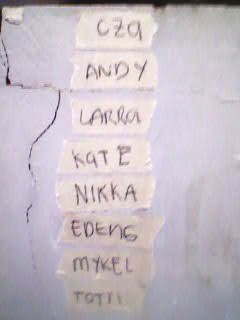 CZA
ANDY
LARRA
KATE
NIKKA
EDENS
MYKEL
TOTTI